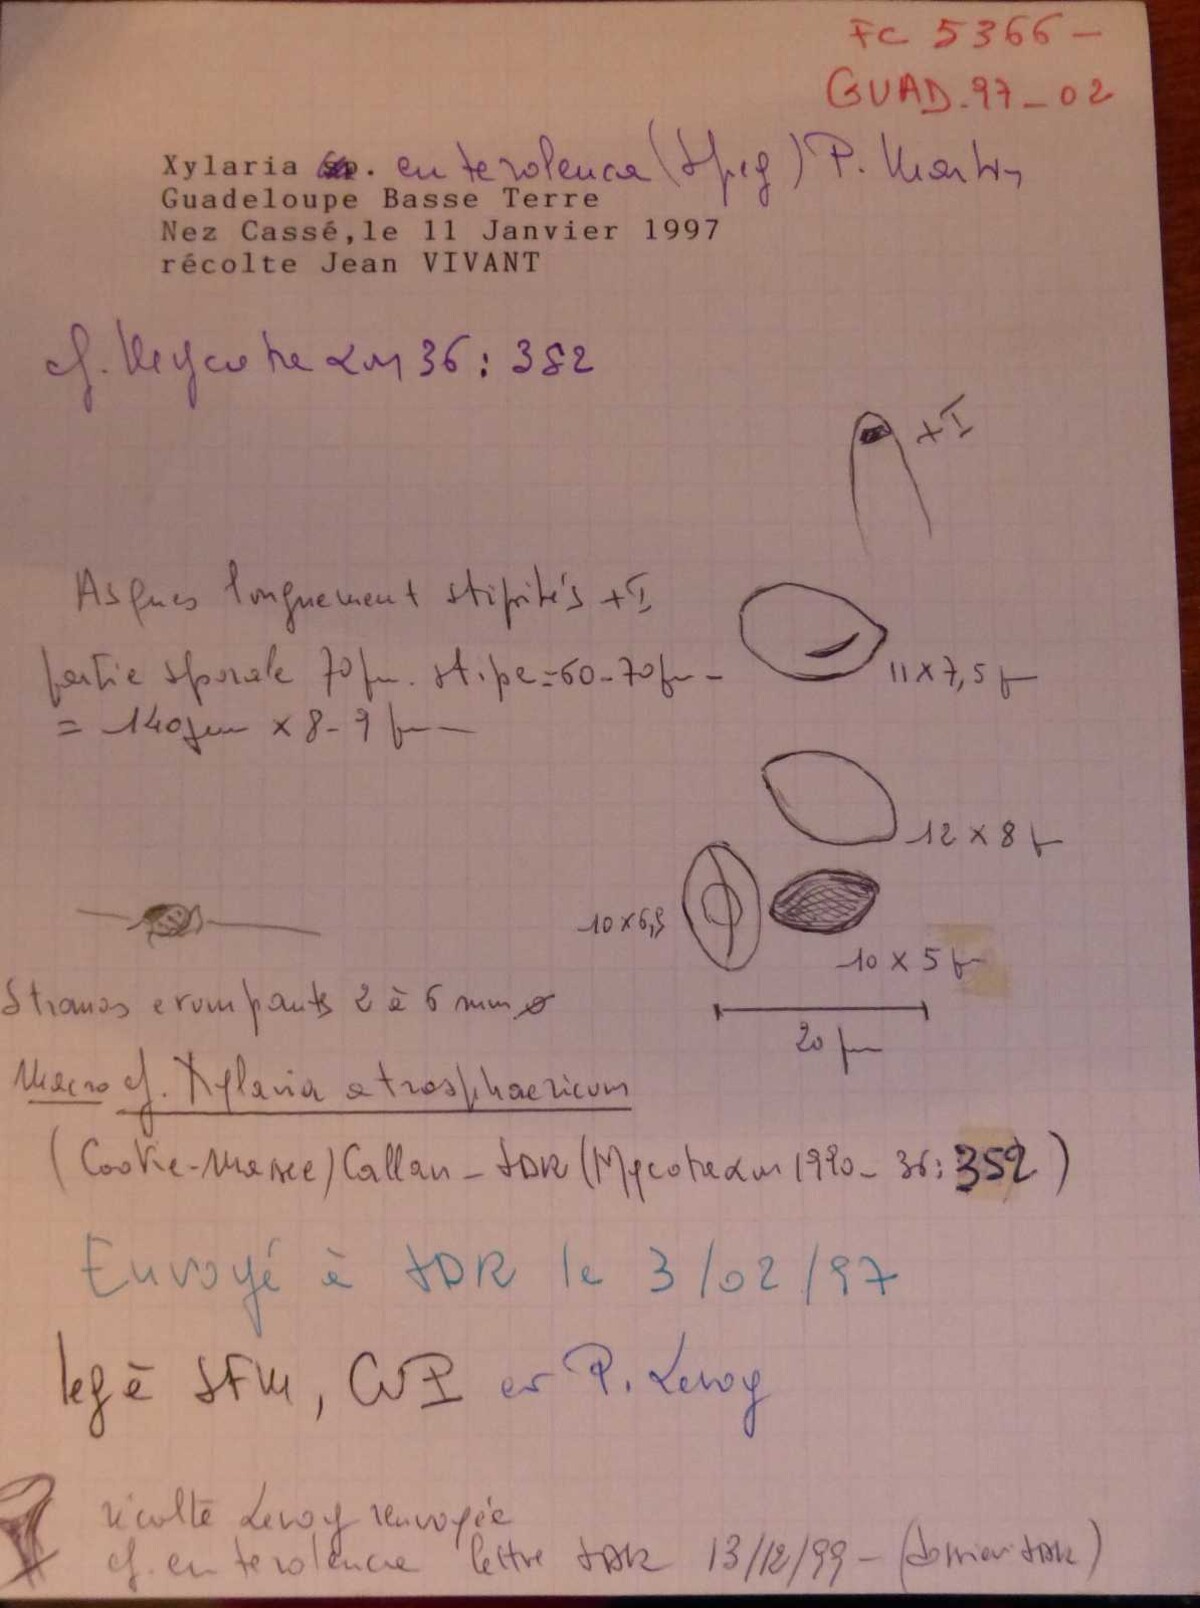 FC 5366 -
GUAD. 97 - 02
Xylaria sp. enteroleuca (Speg) P. Martin
Guadeloupe Basse Terre
Nez Cassé, le 11 Janvier 1997
récolte Jean VIVANT
cf. Mycotaxon 36 : 382
+ I
Asques longuement stipités + I
partie sporale 70 µm. stipe = 60 - 70 µm -
= 140 µm × 8 - 9 µm
11 × 7,5 µ
12 × 8 µ
10 × 6,5
10 × 5 µ
20 µm
Stromas erumpants 2 à 6 mm ø
Macro cf. Xylaria atrosphaericum
(Cooke - Massee) Callan - JDR (Mycotaxon 1990 - 36: 352)
Envoyé à JDR le 3/02/97
leg à JFM, CVI et P. Leroy
récolte Leroy renvoyée
cf. enteroleuca lettre JDR 13/12/99 - (dossier JDR)